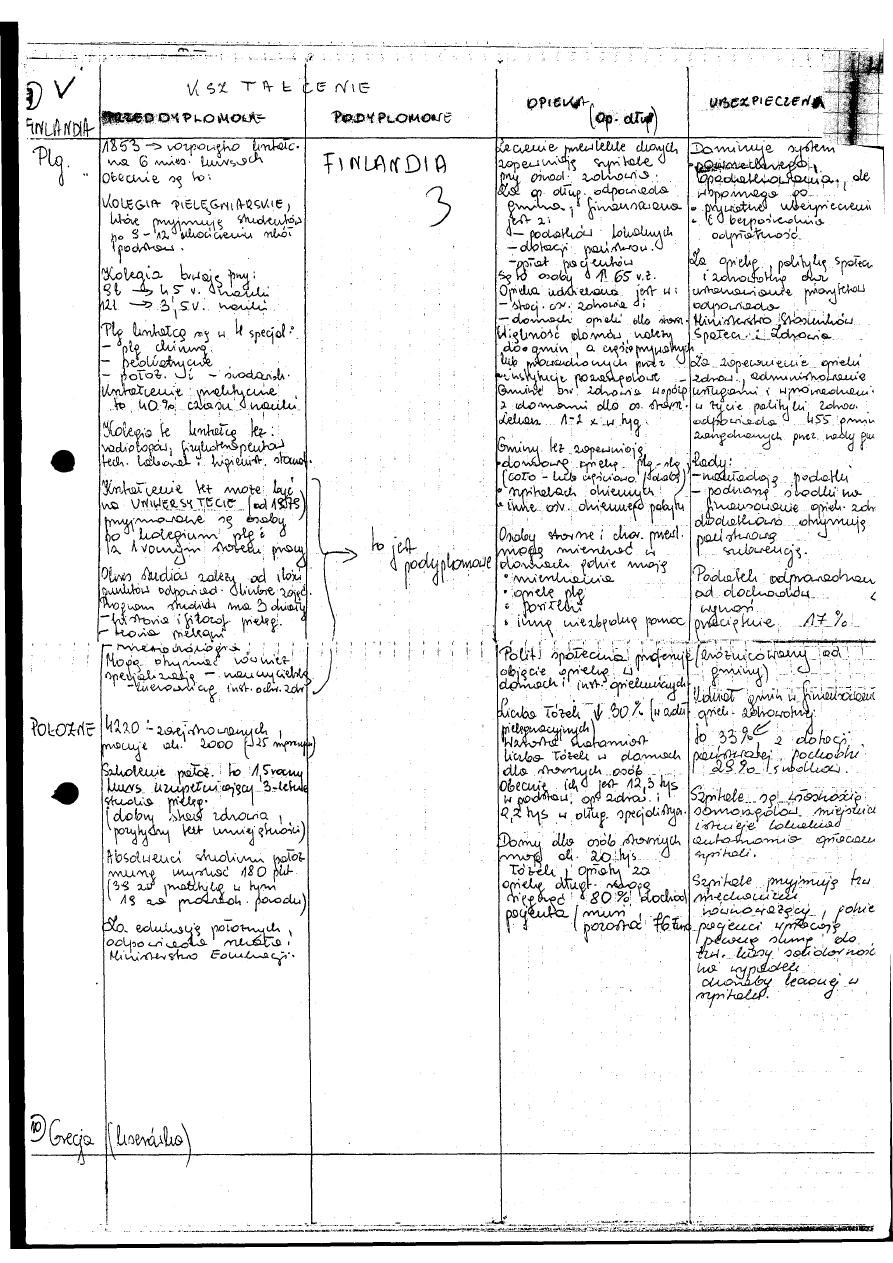 9) V
KSZTAŁCENIE
FINLANDIA
PRZEDDYPLOMOWE
PODYPLOMOWE
OPIEKA (op. dług)
UBEZPIECZENIA
Plg.
1853 → rozpoczęto kształc.
na 6 mies. kursach
Obecnie są to:
KOLEGIA PIELĘGNIARSKIE,
które przyjmują studentów
po 9-12 ukończeniu szkół
podstaw.
Kolegia trwają przy:
9 l → 4,5 r. nauki
12 l → 3,5 r. nauki
Plg kształcą się w 4 specjal:
- plg chirurg
- pediatryczne
- położ. i - środowisk.
Kształcenie praktyczne
to 40% czasu nauki
Kolegia te kształcą też:
radiologów, fizykoterapeutów
tech. laborat i higienist. stomat.
Kształcenie też może być
na UNIWERSYTECIE (od 1979)
przyjmowane są osoby
po kolegium plg i
za 1 rocznym stażem pracy
Okres studiów zależy od ilości
punktów odpowiad. liczbie zajęć.
Program studiów ma 3 działy
- historia i filozof pieleg.
- teoria pielęgn
- metodologia
Mogą otrzymać również
specjalizację - nauczycielską
- kierowniczą inst. ochr. zdr
FINLANDIA
3
to jest
podyplomowe
Leczenie przewlekle chorych
zapewniają szpitale
przy ośrod. zdrowia.
Za op. dług. odpowiada
gmina, finansowana
jest z:
- podatków lokalnych
- dotacji państwow.
- opłat pacjentów
Są to osoby p. 65 r.ż.
Opieka udzielana jest w:
- stacj. oś. zdrowia i
- domach opieki dla starsz.
Większość domów należy
do gmin, a część prywatnych
lub prowadzonych przez
instytucje pozarządowe -
Gminne oś. zdrowia współp
z domami dla os. starsz.
Lekarz 1-2 x w tyg.
Gminy też zapewniają
• domową opiekę plg-ską
(cało- lub częściowo (doby)
• szpitalach dziennych
• inne ośr. dziennego pobytu
Osoby starsze i chor. przewl.
mogą mieszkać w
domach gdzie mają
• mieszkanie
• opiekę plg
• posiłki
• inną niezbędną pomoc
Polit. społeczna preferuje
objęcie opieką w
domach i inst. opiekuńczych
Liczba łóżek ↓ 30% (w zakł.
pielęgnacyjnych)
Wzrosła natomiast
liczba łóżek w domach
dla starszych osób
Obecnie ich jest 12,3 tys
w podstaw. op. zdrow. i
2,2 tys w dług. specjalistycz.
Domy dla osób starszych
mają ok. 20 tys
łóżek, opłaty za
opiekę długt. mogą
sięgać 80% dochodu
pacjenta (musi
pozostać
Dominuje system
powszechnego,
opodatkowania, ale
wspomaga go
• prywatne ubezpieczenie
• i bezpośrednia
odpłatność.
Za opiekę, politykę społecz
i zdrowotną oraz
ustanawianie priorytetów
odpowiada
Ministerstwo Stosunków
Społecz. i Zdrowia
Za zapewnienie opieki
zdrow., administrowanie
usługami i wprowadzeni
w życie polityki zdrow.
odpowiada 455 gmin
zarządzanych przez rady gm
Rady:
- nakładają podatki
- podnoszą środki na
finansowanie opieki zdr
dodatkowo otrzymują
państwową
subwencję.
Podatek odprowadzan
od dochodów
wynosi
przeciętnie 17%
(zróżnicowany od
gminy)
Udział gmin w finansowaniu
opieki zdrowotnej
to 33% z dotacji
państwowej pochodzi
29% środków.
Szpitale są własnością
samorządów, miejskich
istnieje lokalna
autonomia
szpitali.
Szpitale przyjmują tzw
mechanizm
równoważący, gdzie
pacjenci wpłacają
pewną sumę do
tzw. kasy solidarność
na wypadek
choroby leczonej w
szpitalu.
POŁOŻNE
4220 - zarejestrowanych,
pracuje ok. 2000
Szkolenie położ. to 1,5 roczny
kurs uzupełniający 3-letnie
studia pielęg.
(dobry stan zdrowia,
pozytywny test umiejętności)
Absolwenci studium położ
muszą uzyskać 180 pkt
(98 za praktykę w tym
18 za porodu)
Za edukację położnych,
odpowiada
Ministerstwo Edukacji.
10) Grecja (książka)